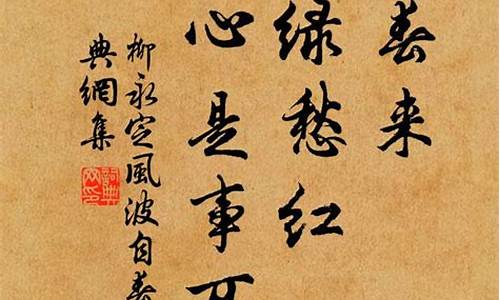 春来
绿愁红
心是事可
柳永定風波自春
典網集